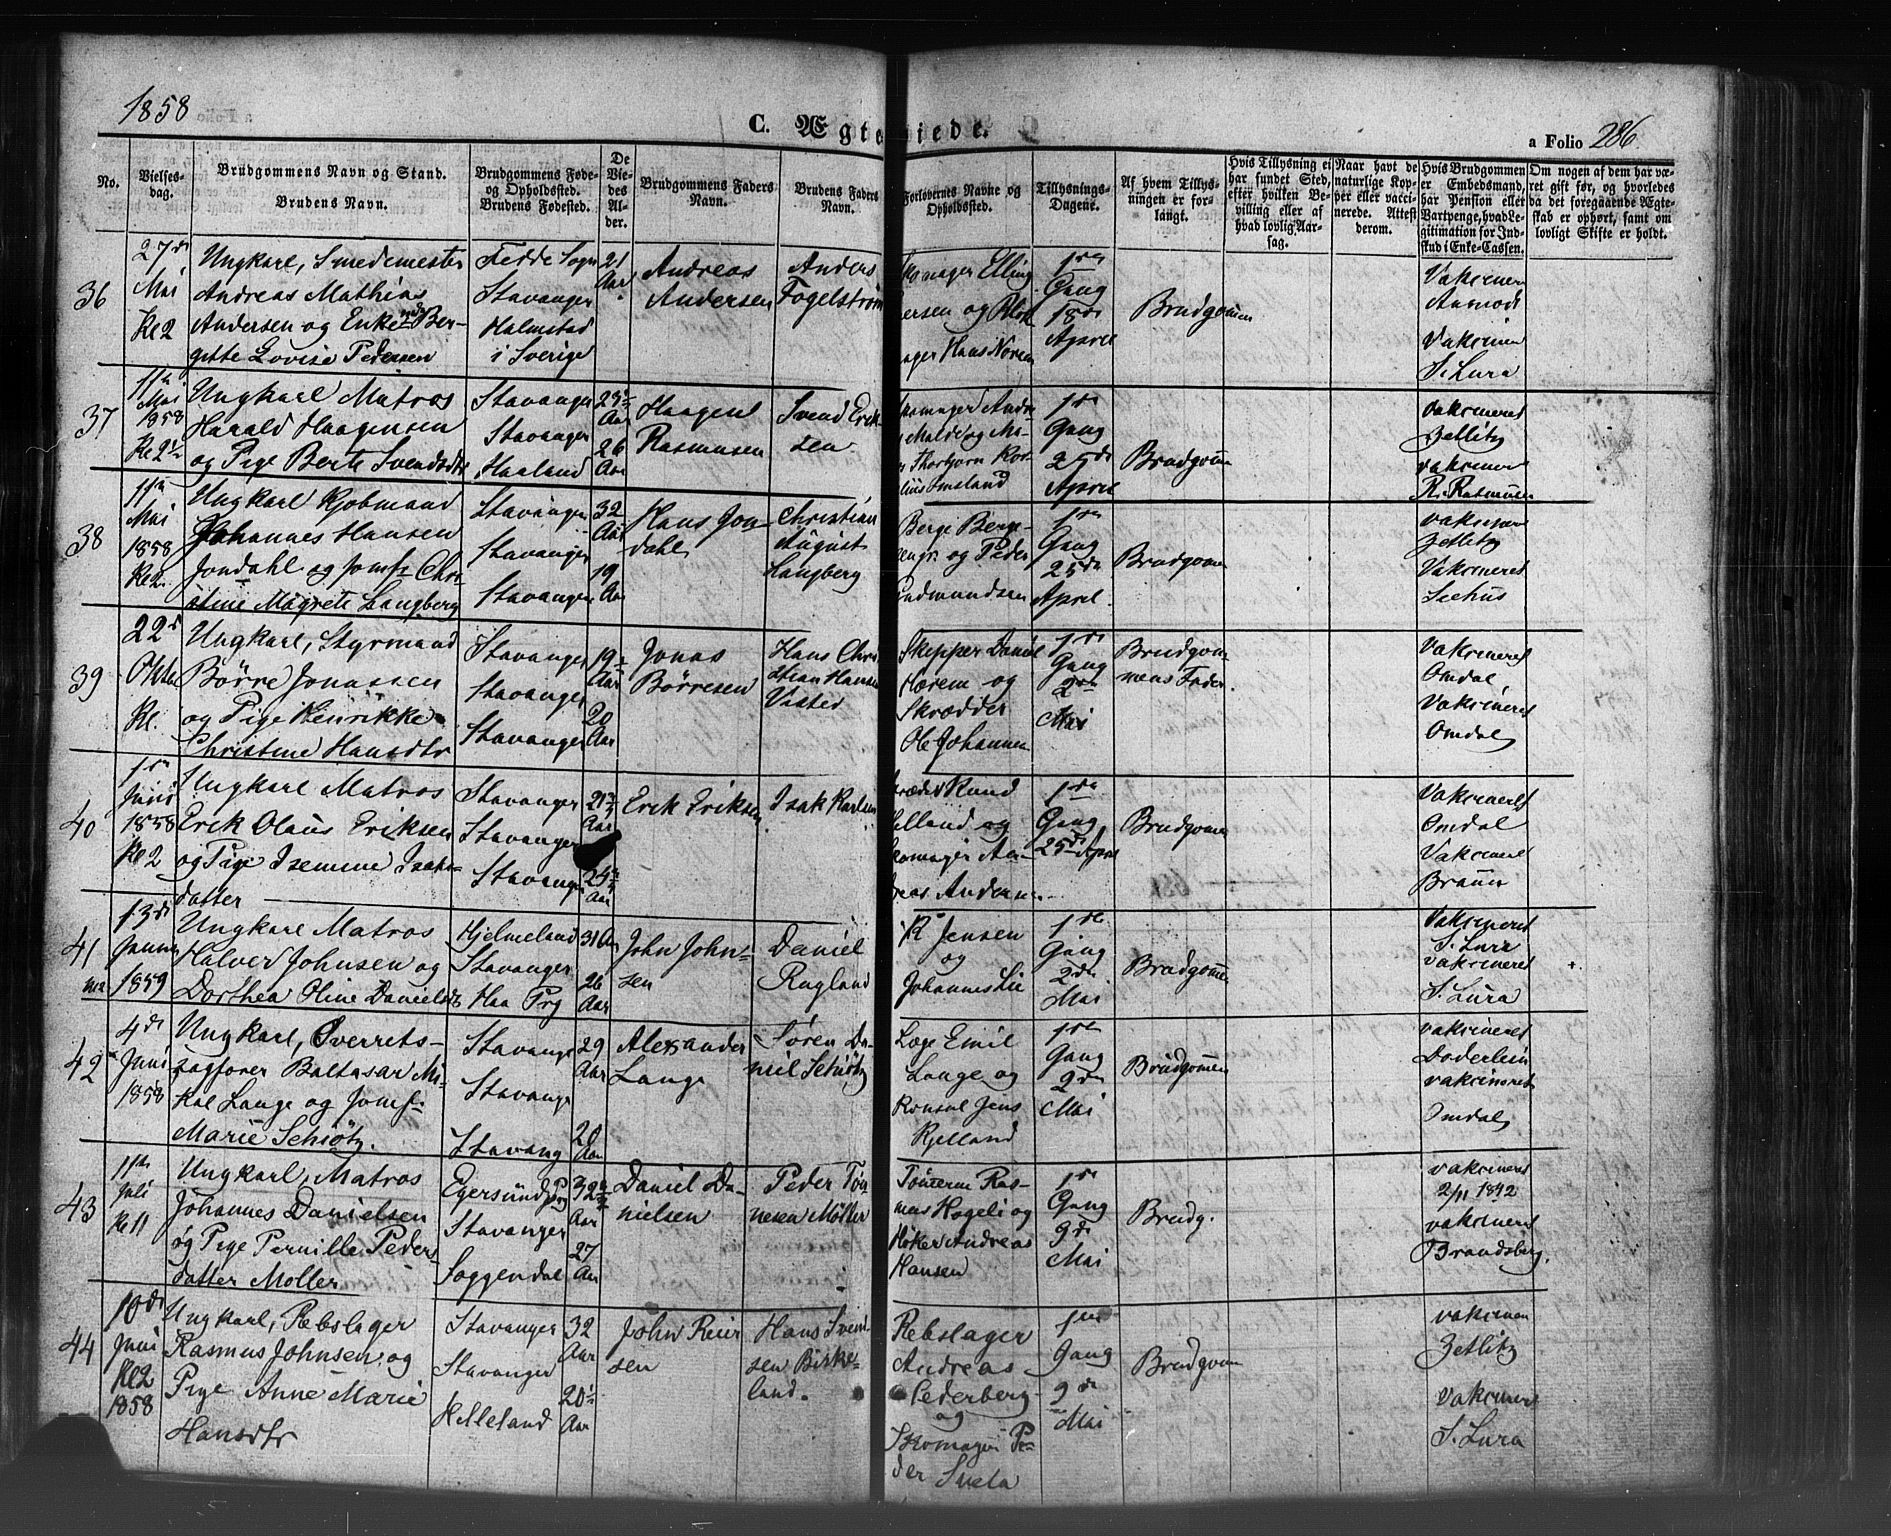 1858
C. Ægteviede.
a Folio 286.
No.
Vielses-
dag.
Brudgommens Navn og Stand.
Brudens Navn.
Brudgommens Føde-
og Opholdssted.
Brudens Fødested.
De
Vie-
des
Al-
der.
Brudgommens Faders
Navn.
Brudens Faders
Navn.
Forlovernes Navne og
Opholdssted.
Tillysnings-
Dagene.
Af hvem Tillys-
ningen er for-
langt.
Hvis Tillysning ei
har fundet Sted,
efter hvilken Be-
villing eller af
hvad lovlig Aar-
sag.
Naar havt de
naturlige Kop-
per eller vacci-
nerede. Attest
derom.
Hvis Brudgommen
er Embedsmand,
har Pension eller
Vartpenge, hvad Le-
gitimation for Ind-
skud i Enke-Cassen.
Om nogen af dem har væ-
ret gift før, og hvorledes
da det foregaaende Ægte-
skab er ophørt, samt om
lovligt Skifte er holdt.
36
27de
Mai
Kl 2
Ungkarl, Smedemester
Andreas Mathias
Andersen og Enke Ber-
gitte Lovise Pedersen
Fedde Sogn
Stavanger
Halmstad
i Sverige
21
Aar
Andreas
Andersen
Anders
Fogelstrøm
komager Elling
ersen og
ager Hans Noren
1ste
Gang
18de
April
Brudgomen
Vakciner
Aamodt
Vakciner
S. Lura
37
11te
Mai
1858
Kl 2½
Ungkarl Matros
Harald Haagensen
og Pige Berte Svendsdtr
Stavanger
Stavanger
Haaland
23½
Aar
26
Aar
Haagen
Rasmusen
Svend Erik-
sen
komager Andre
Malde og Ma-
r Thorbjørn Kor-
lius Imsland
1ste
Gang
25de
April
Brudgomen
Vakcineret
Zetlitz
vakciner
R. Rasmusen
38
11te
Mai
1858
Kl 2.
Ungkarl Kjøbmand
Johannes Hansen
Jondahl og Jomf: Chri-
stine Magrete Langberg
Stavanger
Stavanger
Stavanger
32
Aar
19
Aar
Hans Jon-
dahl
Christian
August
Langberg
Berge Berge-
sen og Peder
Gudmundsen
1ste
Gang
25de
April.
Brudgomen
vakciner
Zetlitz
Vakcineret
Seehus
39
22de
Oktbr
Kl.
Ungkarl, Styrmand
Børre Jonassen
og Pige Henrikke
Christine Hansdtr
Stavanger
Stavanger
Stavanger
19½
Aar
20
Aar
Jonas
Børresen
Hans Chri
stian Hansen
Visted
Skipper Daniel
Hærem og
Skrædder
Ole Johannesen
1ste
Gang
2den
Mai
Brudgom-
mens Fader.
Vakcineret
Omdal
Vakcineret
Omdal
40
1ste
Juni
1858
Kl 2
Ungkarl Matros
Erik Olaus Eriksen
og Pige Isemine Isaks-
datter
Stavanger
Stavanger
Stavanger
21¾
Aar
Aar
Erik Eriksen
Isak Karlsen
ræder Knud
elland og
komager An-
reas Andersen.
1ste
Gang
25de April
Brudgomen
Vakcineret
Omdal
Vakcineret
Bruun
41
13de
Januar
1859
Ungkarl Matros
Halver Johnsen og
Dorthea Oline Danielsdtr
Hjelmeland
Stavanger
Haa Prg
31 Aar
26
Aar
John John-
sen
Daniel
Rugland
R Jensen
og
Johannes Lie
1ste
Gang
2den
Mai
Brudgomen
Vakcineret
S. Lura
vakcineret
S. Lura
42
4de
Juni
1858
Ungkarl, Overrets-
sagfører Baltasar Mi-
kal Lange og Jomf:
Marie Schiøtz.
Stavange
Stavange
Stavang
29
Aar
20
Aar
Alexander
Lange
Søren Da-
niel Schiøtz
Læge Emil
Lange og
Konsul Jens
Kjelland
1ste
Gang
2den
Mai
Brudgomen
vakcineret
Døderlein
vakcineret
Omdal
43
11te
Juli
Kl 11
Ungkarl, Matros
Johannes Danielsen
og Pige Pernille Peders
datter Møller
Egersund Prg
Stavanger
Soggendal
32
Aar
27
Aar
Daniel Da-
nielsen
Peder Tøn-
nesen Møller
Tømrerne Ras-
mus Hogeli og
Høker Andreas
Hansen
1ste
Gang
9de
Mai
Brudg.
vakcineret
2/11 1842
vakcineret
Brandsberg.
44
10de
Juni
Kl 2
1858
Ungkarl, Rebslager
Rasmus Johnsen og
Pige Anne Marie
Hansdtr
Stavanger
Stavanger
Helleland
32
Aar
20½
Aar
John Reier
sen
Hans Svend-
sen Birke-
land.
Rebslager
Andreas
Cederberg
og
Skomager Pe-
der Svela
1ste
Gang
9de
Mai
Brudgomen
vakciner
Zetlitz
vakcineret
S. Lura